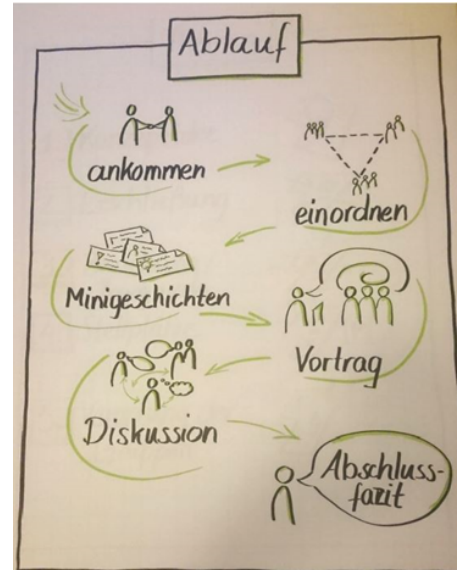 Ablauf
ankommen
einordnen
Minigeschichten
Vortrag
Diskussion
Abschluss-
fazit